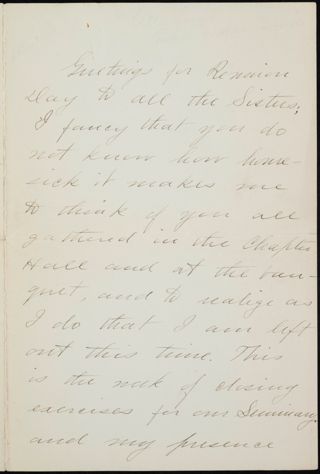 Greetings for Reunion
Day to all the Sisters;
I fancy that you do
not know how home-
sick it makes me
to think of you all
gathered in the Chapter
Hall and at the ban-
quet, and to realize as
I do that I am left
out this time. This
is the week of closing
exercises for our Seminary
and my presence